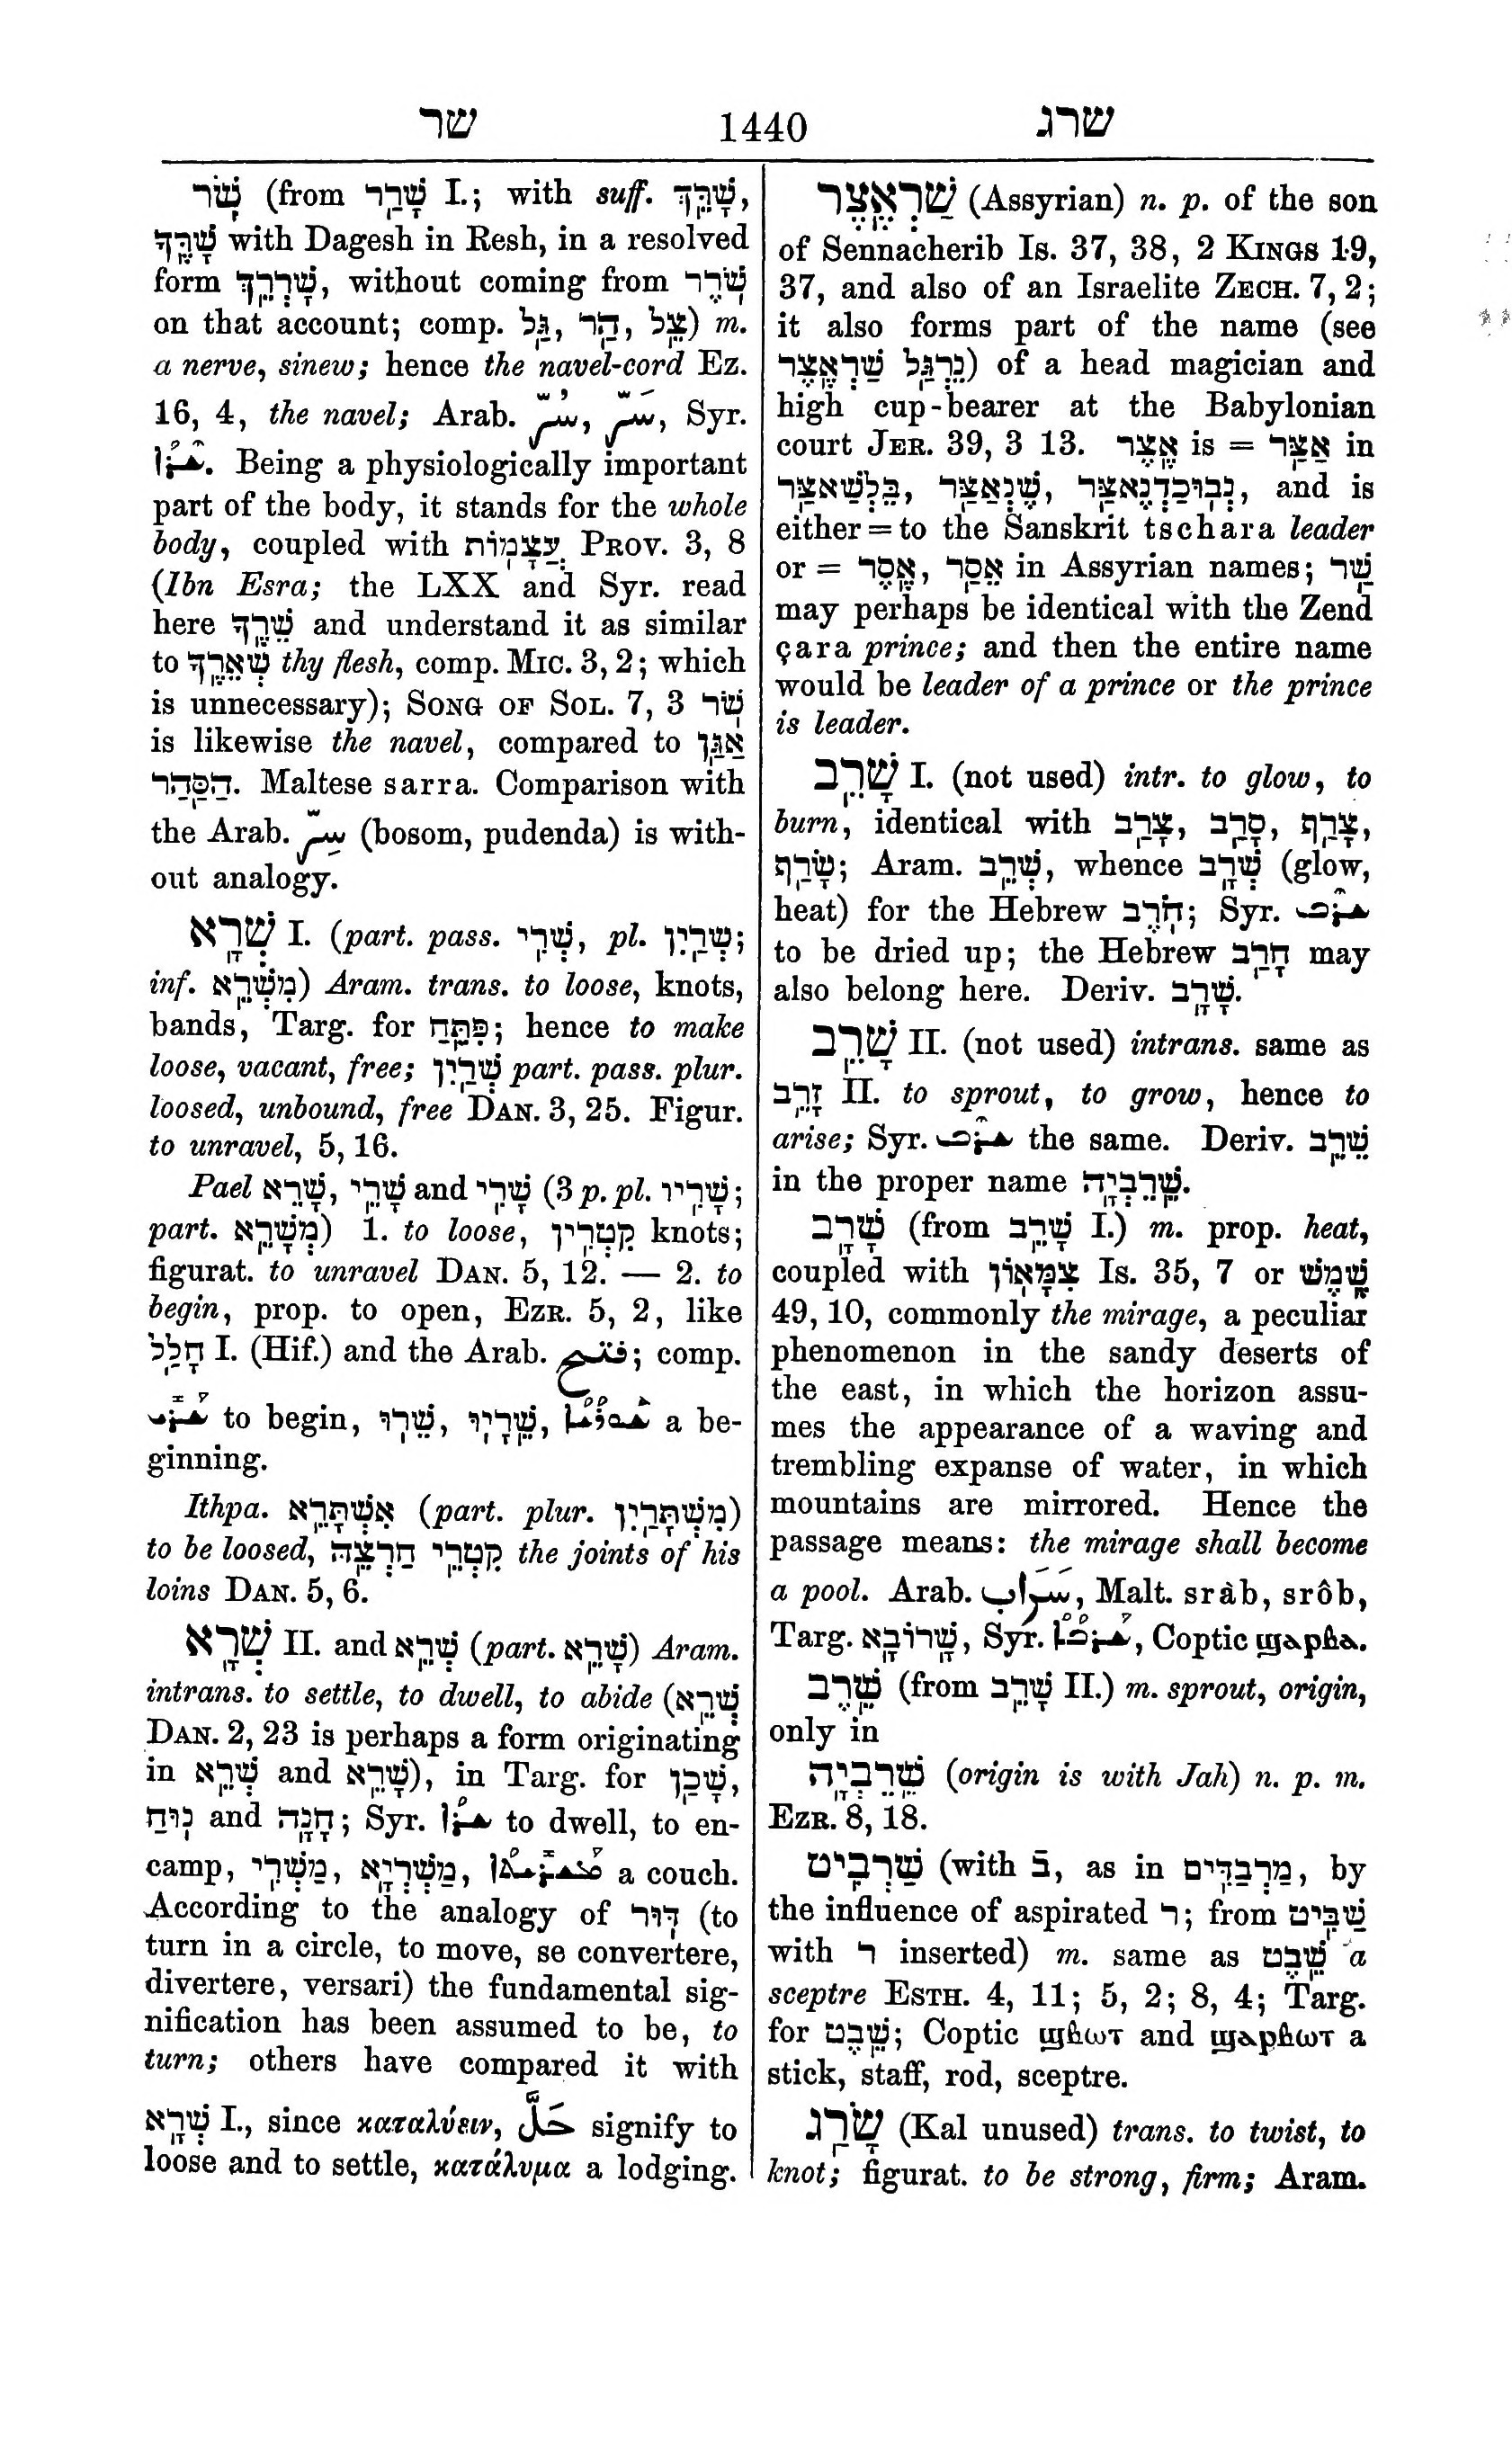 שר 1440 שרג
שֹׁר (from שָׁרַר I.; with suff. שָׁרֵּךְ,
שָׁרֶּךָ with Dagesh in Resh, in a resolved
form שָׁרְרֵךְ, without coming from שֹׁרֶר
on that account; comp. גַּל, הַר, צֵל) m.
a nerve, sinew; hence the navel-cord Ez.
16, 4, the navel; Arab. سُرّ, سَرّ, Syr.
ܫܪܐ. Being a physiologically important
part of the body, it stands for the whole
body, coupled with עֲצָמוֹת Prov. 3, 8
(Ibn Esra; the LXX and Syr. read
here שֵׁרֶךָ and understand it as similar
to שְׁאֵרֶךָ thy flesh, comp. Mic. 3, 2; which
is unnecessary); Song of Sol. 7, 3 שֹׁר
is likewise the navel, compared to אַגַּן
הַסַּהַר. Maltese sarra. Comparison with
the Arab. سِرّ (bosom, pudenda) is with-
out analogy.
שְׁרָא I. (part. pass. שְׁרִי, pl. שְׁרַיִן;
inf. מִשְׁרֵא) Aram. trans. to loose, knots,
bands, Targ. for פִּתַּח; hence to make
loose, vacant, free; שְׁרַיִן part. pass. plur.
loosed, unbound, free Dan. 3, 25. Figur.
to unravel, 5, 16.
Pael שָׁרֵא, שָׁרֵי and שָׁרִי (3 p. pl. שָׁרִיו;
part. מְשָׁרֵא) 1. to loose, קִטְרִין knots;
figurat. to unravel Dan. 5, 12. — 2. to
begin, prop. to open, Ezr. 5, 2, like
חָלַל I. (Hif.) and the Arab. فتح; comp.
ܫܪܝ to begin, שֵׁרוּ, שֵׁרָיוּ, ܫܘܪܝܐ a be-
ginning.
Ithpa. אִשְׁתָּרֵא (part. plur. מִשְׁתָּרַיִן)
to be loosed, קִטְרֵי חַרְצֵהּ the joints of his
loins Dan. 5, 6.
שְׁרָא II. and שְׁרֵא (part. שָׁרֵא) Aram.
intrans. to settle, to dwell, to abide (שְׁרֵא
Dan. 2, 23 is perhaps a form originating
in שְׁרֵא and שָׁרֵא), in Targ. for שָׁכַן,
נוּחַ and חָנָה; Syr. ܫܪܐ to dwell, to en-
camp, מַשְׁרִי, מַשְׁרְיָא, ܡܫܪܝܬܐ a couch.
According to the analogy of דּוּר (to
turn in a circle, to move, se convertere,
divertere, versari) the fundamental sig-
nification has been assumed to be, to
turn; others have compared it with
שְׁרָא I., since καταλύειν, حَلَّ signify to
loose and to settle, κατάλυμα a lodging.
שַׁרְאֶצֶר (Assyrian) n. p. of the son
of Sennacherib Is. 37, 38, 2 Kings 19,
37, and also of an Israelite Zech. 7, 2;
it also forms part of the name (see
נֵרְגַּל שַׁרְאֶצֶר) of a head magician and
high cup-bearer at the Babylonian
court Jer. 39, 3 13. אֶצֶר is = אַצַּר in
נְבוּכַדְנֶאצַּר, שֶׁנְאַצַּר, בֵּלְשַׁאצַּר, and is
either = to the Sanskrit tschara leader
or = אֵסַר, אֶסֶר in Assyrian names; שַׁר
may perhaps be identical with the Zend
çara prince; and then the entire name
would be leader of a prince or the prince
is leader.
שָׁרַב I. (not used) intr. to glow, to
burn, identical with צָרַב, סָרַב, צָרַף,
שָׂרַף; Aram. שְׁרֵב, whence שְׁרָב (glow,
heat) for the Hebrew חֹרֶב; Syr. ܫܪܒ
to be dried up; the Hebrew חָרַב may
also belong here. Deriv. שָׁרָב.
שָׁרֵב II. (not used) intrans. same as
זָרַב II. to sprout, to grow, hence to
arise; Syr. ܫܪܒ the same. Deriv. שֵׁרֵב
in the proper name שֵׁרֵבְיָה.
שָׁרָב (from שָׁרֵב I.) m. prop. heat,
coupled with צִמָּאוֹן Is. 35, 7 or שֶׁמֶשׁ
49, 10, commonly the mirage, a peculiar
phenomenon in the sandy deserts of
the east, in which the horizon assu-
mes the appearance of a waving and
trembling expanse of water, in which
mountains are mirrored. Hence the
passage means: the mirage shall become
a pool. Arab. سَرَاب, Malt. sràb, srôb,
Targ. שָׁרוֹבָא, Syr. ܫܪܒܐ, Coptic ϣⲁⲣⲃⲁ.
שֶׁרֶב (from שָׁרֵב II.) m. sprout, origin,
only in
שֵׁרֵבְיָה (origin is with Jah) n. p. m.
Ezr. 8, 18.
שַׁרְבִיט (with בֿ, as in מַרְבַדִּים, by
the influence of aspirated ר; from שַׁבִּיט
with ר inserted) m. same as שֵׁבֶט a
sceptre Esth. 4, 11; 5, 2; 8, 4; Targ.
for שֵׁבֶט; Coptic ϣⲃⲱⲧ and ϣⲁⲣⲃⲱⲧ a
stick, staff, rod, sceptre.
שָׂרַג (Kal unused) trans. to twist, to
knot; figurat. to be strong, firm; Aram.